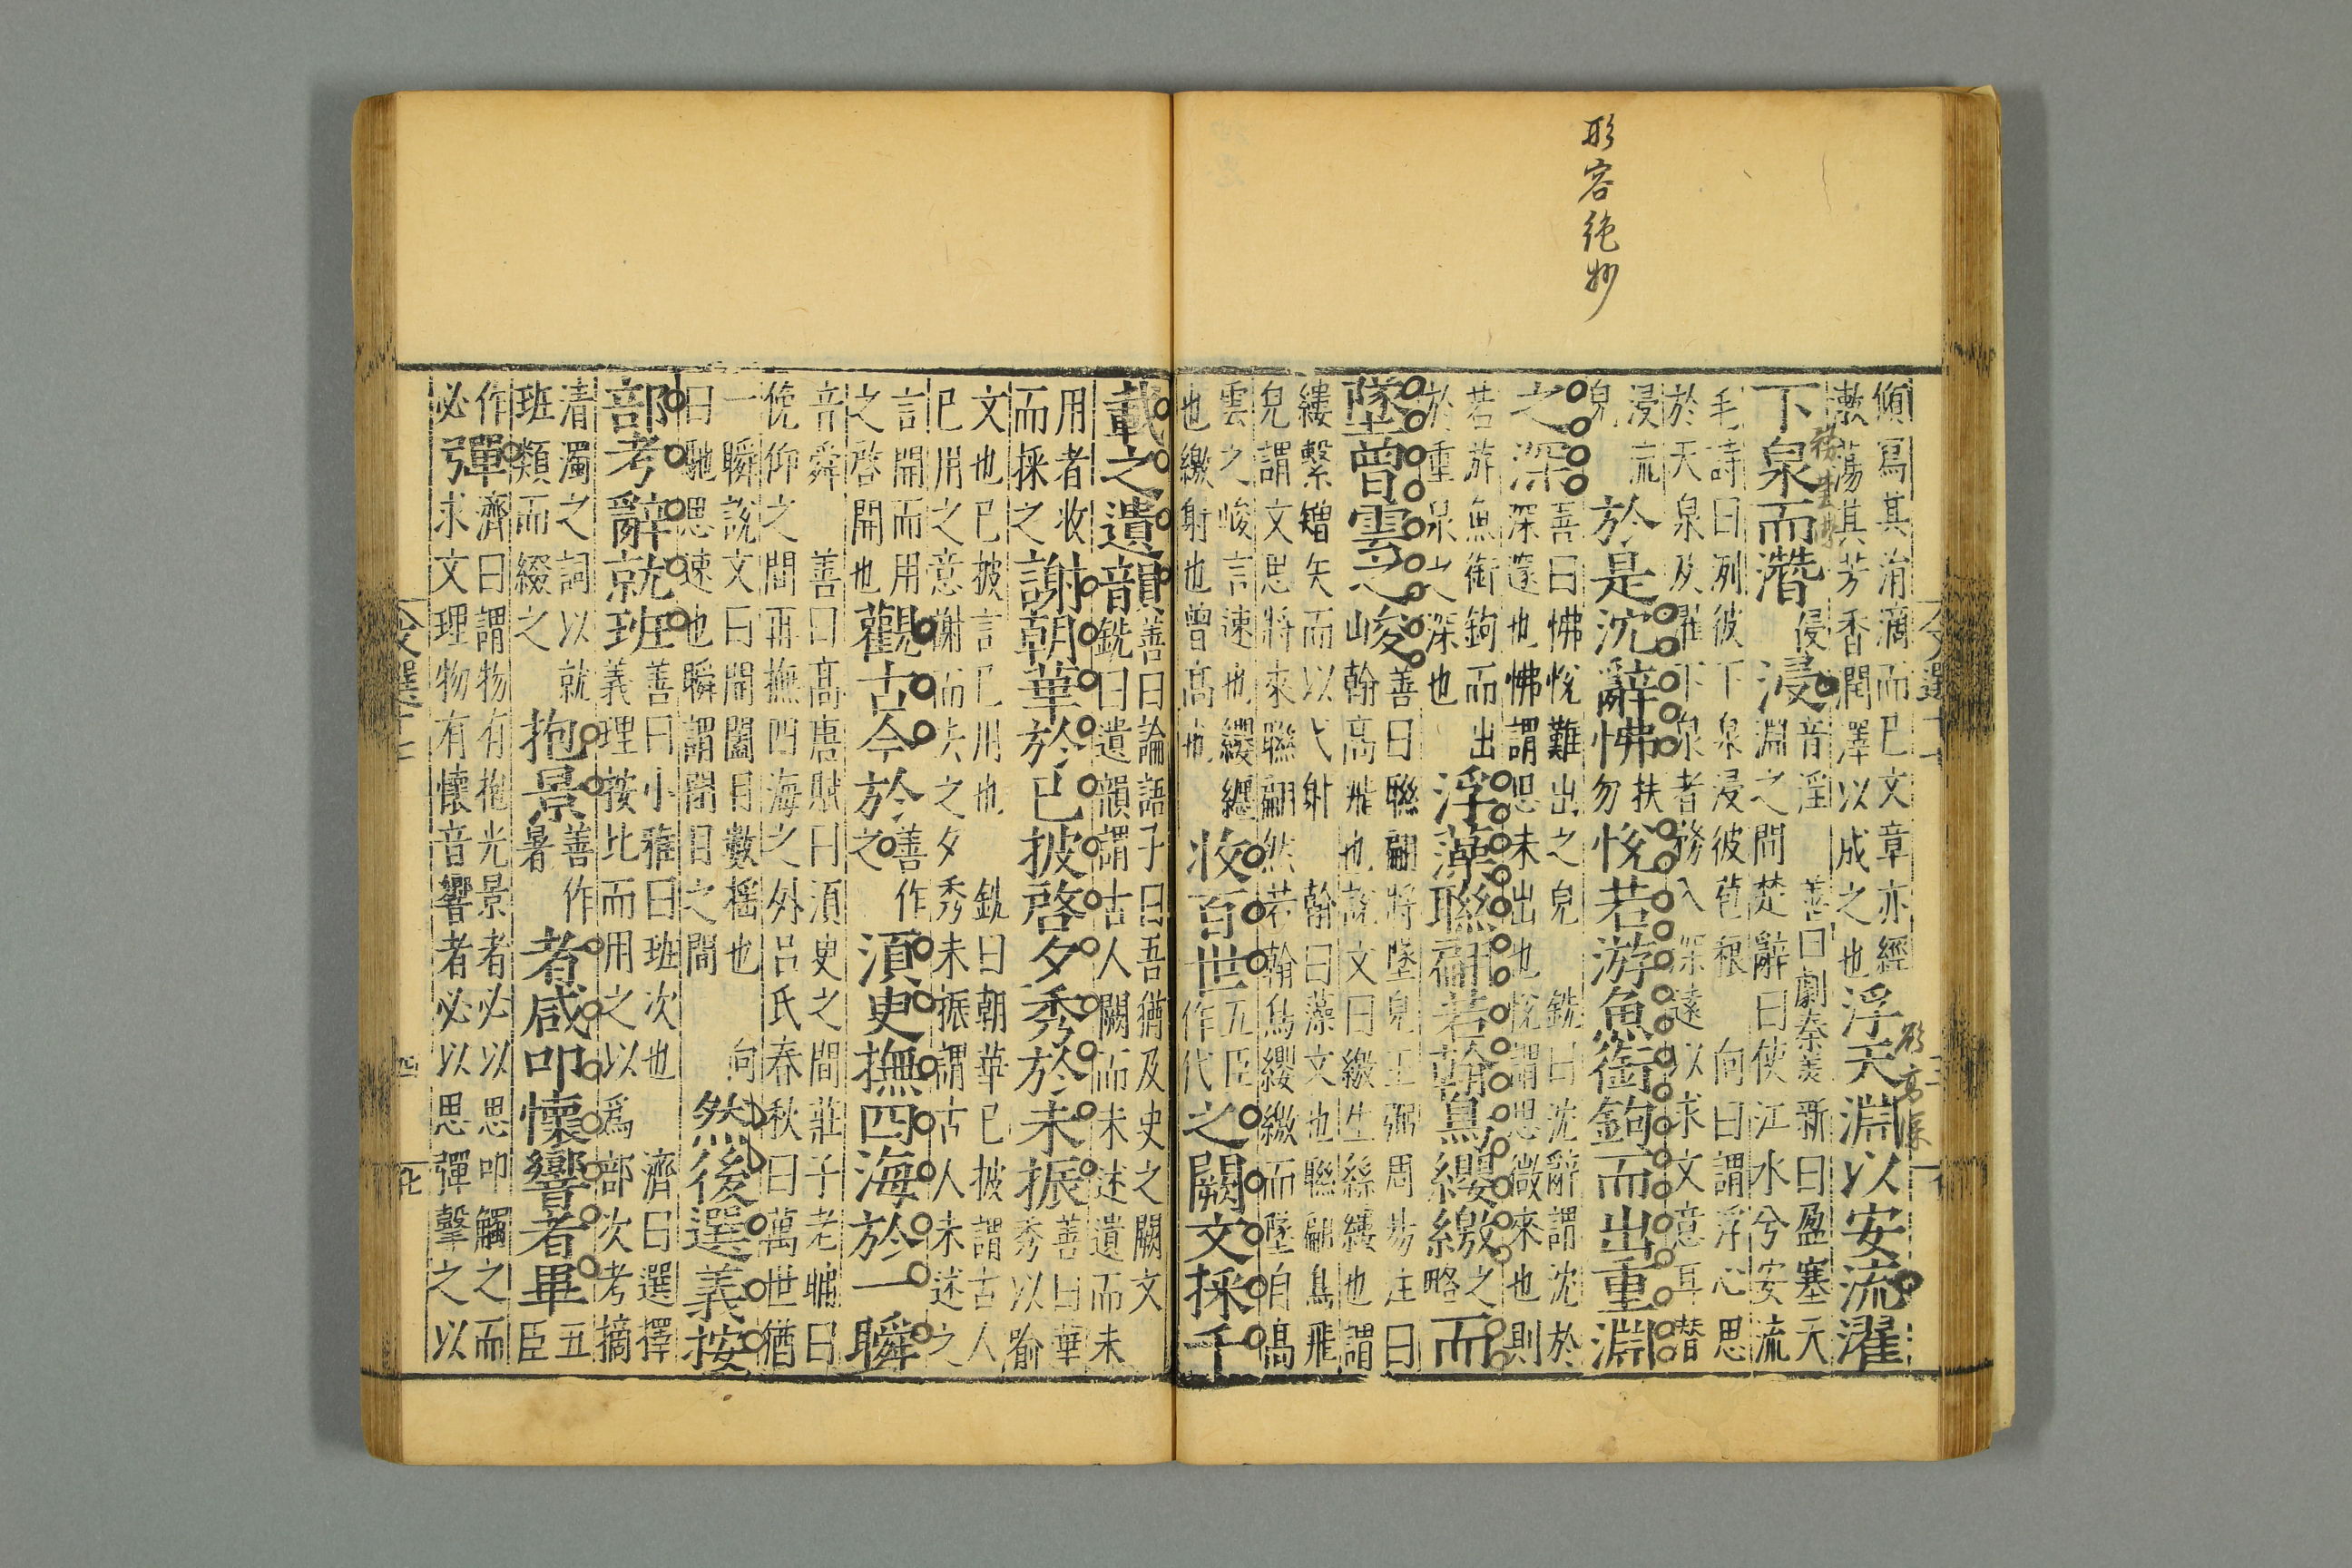 形容絶妙
傾寫其涓滴而已文章亦經
漱蕩其芳香潤澤以成之也
浮天淵以安流濯
下泉而潛
侵
浸
音淫
善曰劇秦美新曰盈塞天
淵之間楚辭曰使江水兮安流
毛詩曰冽彼下泉浸彼苞稂
向曰謂浮心思
於天泉及濯下泉者務入深遠以求文意耳潛
浸流
皃
於是沈辭怫
扶
勿
悅若游魚銜鉤而出重淵
之深
善曰怫悅難出之皃
銑曰沈辭謂沈於
深遠也怫謂思未出也悅謂思微來也則
若游魚銜鉤而出
於重泉之深也
浮藻聯翩若翰鳥纓繳
之
略
而
墜曾雲之峻
善曰聯翩將墜皃王弼周易注曰
翰高飛也說文曰繳生絲縷也謂
縷繫矰矢而以弋射
翰曰藻文也聯翩鳥飛
皃謂文思將來聯翩然若翰鳥纓繳而墜自高
雲之峻言速也纓纏
也繳射也曾高也
收百世
五臣
作代
之闕文採千
載之遺韻
善曰論語子曰吾猶及史之闕文
銑曰遺韻謂古人闕而未述遺而未
用者收
而採之
謝朝華於已披啓夕秀於未振
善曰華
秀以喻
文也已披言已用也
銑曰朝華已披謂古人
已用之意謝而去之夕秀未振謂古人未述之
言開而用
之啓開也
觀古今於
善作
之
須臾撫四海於一瞬
音舜
善曰高唐賦曰須臾之間莊子老聃曰
俛仰之間再撫四海之外呂氏春秋曰萬世猶
一瞬說文曰開闔目數搖也
向
曰馳思速也瞬謂閉目之間
然後選義按
部考辭就班
善曰小雅曰班次也
濟曰選擇
義理按比而用之以爲部次考摘
清濁之詞以就
班類而綴之
抱景
善作
暑
者咸叩懷響者畢
五
臣
作
必
彈
濟曰謂物有抱光景者必以思叩觸之而
求文理物有懷音響者必以思彈擊之以